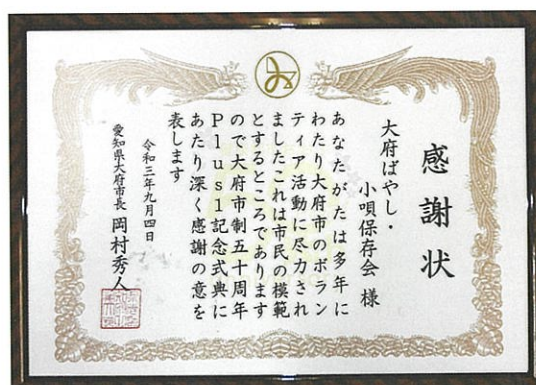 感謝状
大府ばやし・
小唄保存会 様
あなたがたは多年に
わたり大府市のボラン
ティア活動に尽力され
ましたこれは市民の模範
とするところであります
ので大府市制五十周年
Plus1記念式典に
あたり深く感謝の意を
表します
令和三年九月四日
愛知県大府市長 岡村秀人